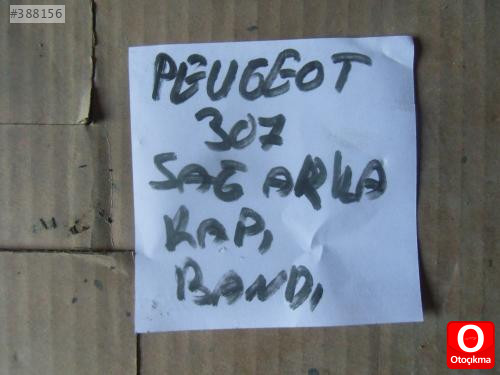 #388156
PEUGEOT
307
SAĞ ARKA
KAPI
BANDI
O
Otoçıkma